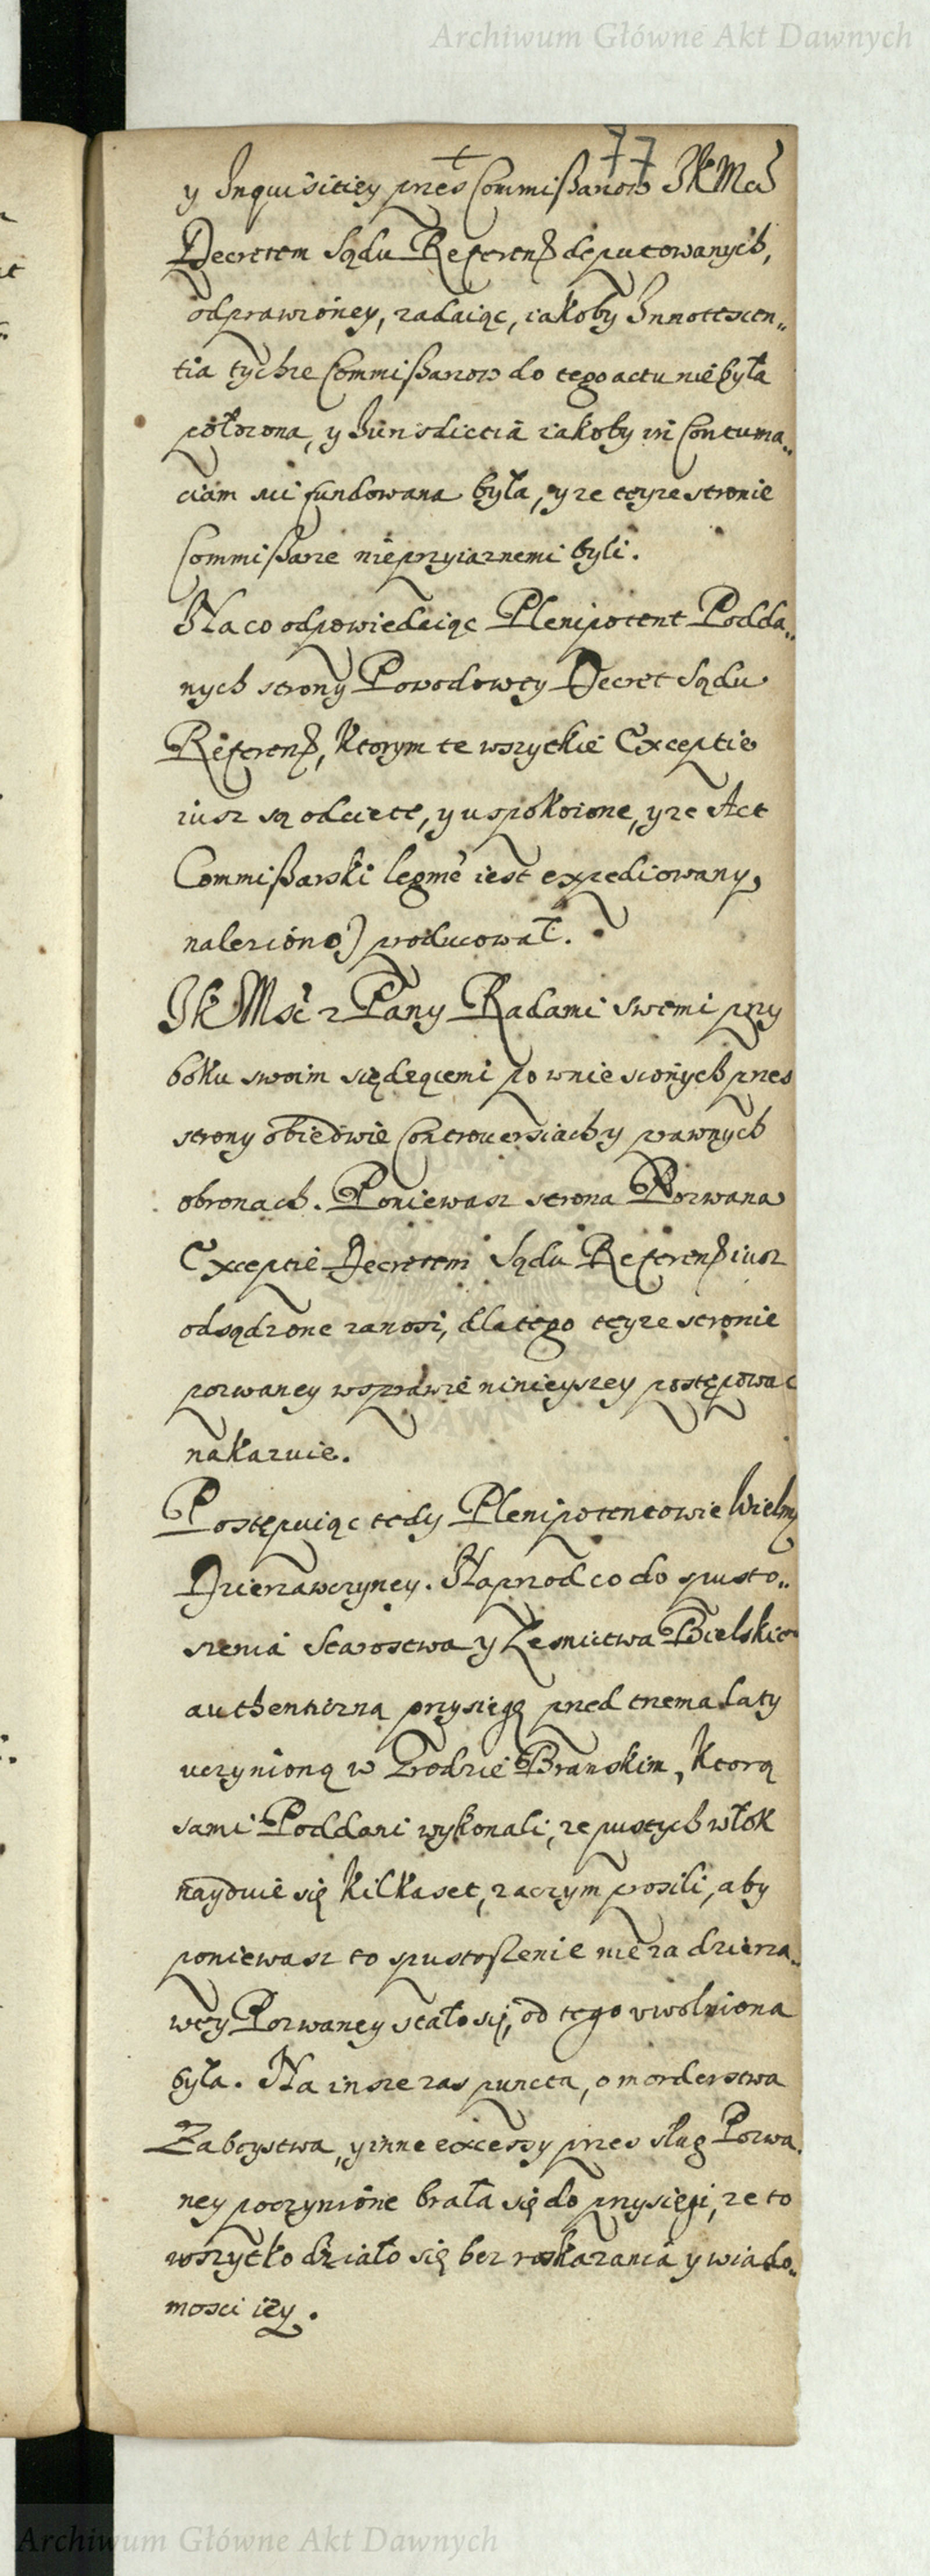 Archiwum Główne Akt Dawnych
77
y Inquisitiey przes Commißarzow JKMci
Decretem Sądu Referenß deputowanych,
odprawioney, zadaiąc, iakoby Innotescen„
tia tychze Commißarzow do tego actu nie była
położona, y Iurisdictia iakoby in Contuma„
ciam nie fundowana była, y ze teyze stronie
Commißarze nieprzyiaznemi byli.
Na co odpowiedaiąc Plenipotent Podda„
nych strony Powodowey Decret Sądu
Referenß, Ktorym te wszytkie Exceptie
iusz są odciete, y uspokoione, y ze Act
Commißarski legmē iest expediowany,
naleziono) producował.
JKMść z Pany Radami swemi przy
boku swoim siędzącemi po wniesionych przes
strony obiedwie Controversiach y prawnych
obronach. Poniewasz strona Pozwana
Exceptie Decretem Sądu Referenß iusz
odsądzone zanosi, dla tego teyze stronie
pozwaney w sprawie ninieyszey postępowac
nakazuie.
Postępuiąc tedy Plenipotentowie Wielmz
Dzierzawczyney. Naprzod co do spusto„
szenia Starostwa y Lesnictwa Bielskie
authentizną przysięgę przed trzema laty
uczynioną w Grodzie Branskim, Ktorą
sami Poddani wykonali, ze pustych włok
nayduie się Kilkaset, zaczym prosili, aby
poniewasz to spustoszenie nie za dzierza„
wey Pozwaney stało się, od tego uwolniona
była. Na insze zas puncta, o morderstwa
Zaboystwa, y inne excessy przes sług Pozwa„
ney poczynione brała się do przysięgi, ze to
wszytko działo się bez roskazania y wiado„
mosci iey.
Archiwum Główne Akt Dawnych